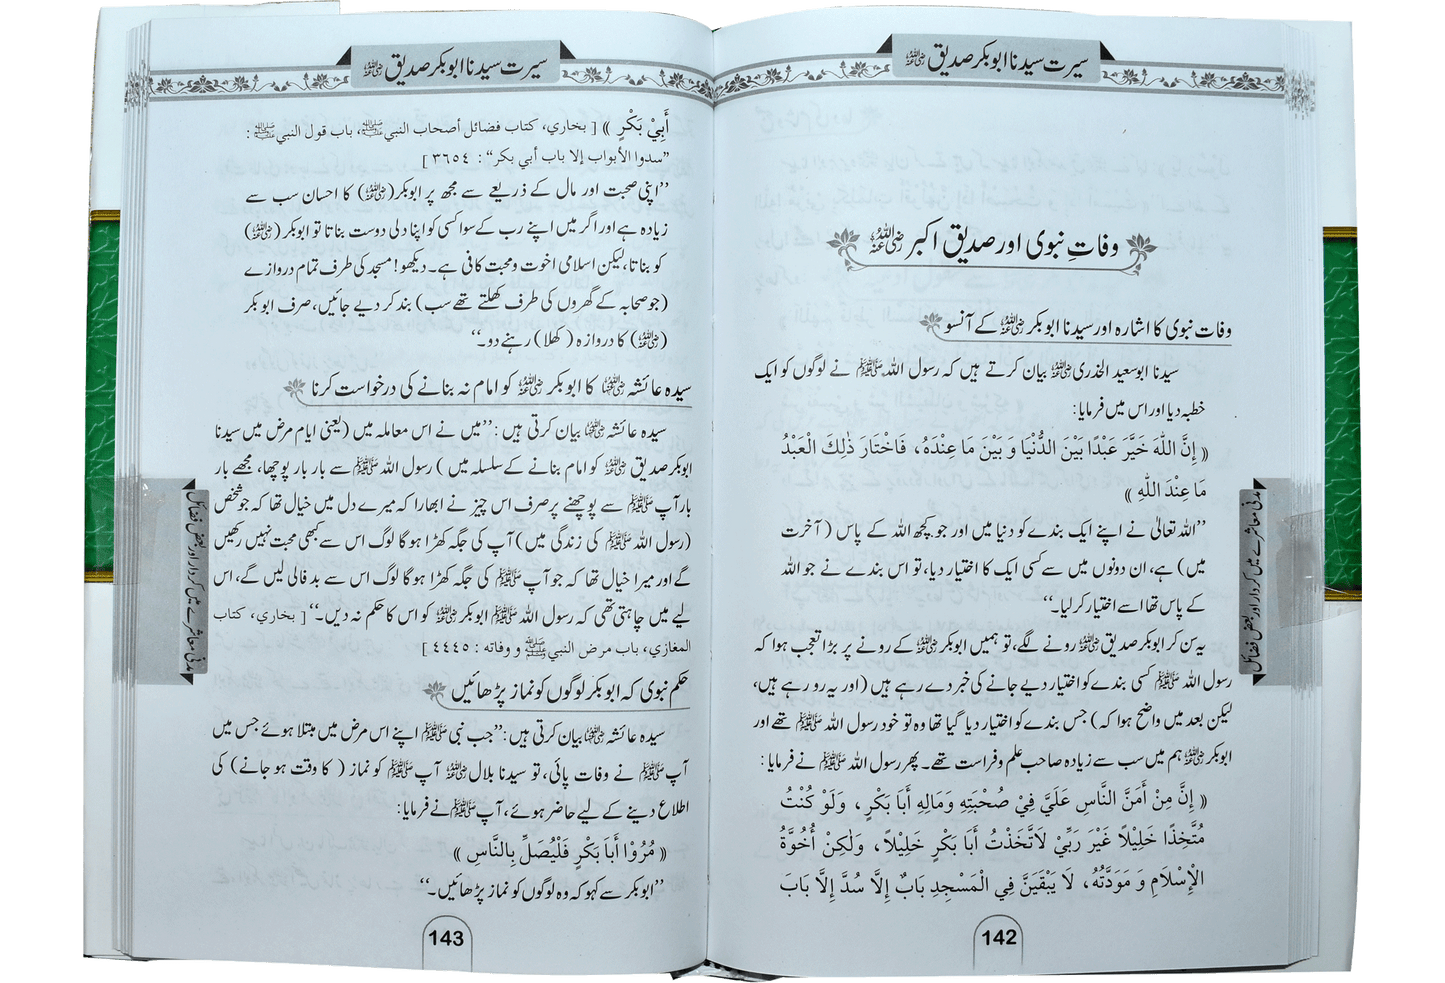 سیرت سیدنا ابوبکر صدیق ﷛
وفاتِ نبوی اور صدیق اکبر ﷛
وفات نبوی کا اشارہ اور سیدنا ابوبکر ﷛ کے آنسو
سیدنا ابوسعید الخدری ﷛ بیان کرتے ہیں کہ رسول اللہ ﷺ نے لوگوں کو ایک
خطبہ دیا اور اس میں فرمایا:
« إِنَّ اللّٰهَ خَيَّرَ عَبْدًا بَيْنَ الدُّنْيَا وَ بَيْنَ مَا عِنْدَهُ، فَاخْتَارَ ذٰلِكَ الْعَبْدُ
مَا عِنْدَ اللّٰهِ »
’’اللہ تعالیٰ نے اپنے ایک بندے کو دنیا میں اور جو کچھ اللہ کے پاس (آخرت
میں) ہے، ان دونوں میں سے کسی ایک کا اختیار دیا، تو اس بندے نے جو اللہ
کے پاس تھا اسے اختیار کر لیا۔‘‘
یہ سن کر ابوبکر صدیق ﷛ رونے لگے، تو ہمیں ابوبکر ﷛ کے رونے پر بڑا تعجب ہوا کہ
رسول اللہ ﷺ کسی بندے کو اختیار دیے جانے کی خبر دے رہے ہیں (اور یہ رو رہے ہیں،
لیکن بعد میں واضح ہوا کہ) جس بندے کو اختیار دیا گیا تھا وہ تو خود رسول اللہ ﷺ تھے اور
ابوبکر ﷛ ہم میں سب سے زیادہ صاحب علم و فراست تھے۔ پھر رسول اللہ ﷺ نے فرمایا:
« إِنَّ مِنْ أَمَنَّ النَّاسِ عَلَيَّ فِيْ صُحْبَتِهِ وَمَالِهِ أَبَا بَكْرٍ، وَلَوْ كُنْتُ
مُتَّخِذًا خَلِيْلًا غَيْرَ رَبِّيْ لَاتَّخَذْتُ أَبَا بَكْرٍ خَلِيْلًا، وَلٰكِنْ أُخُوَّةُ
الْإِسْلَامِ وَ مَوَدَّتُهُ، لَا يَبْقَيَنَّ فِي الْمَسْجِدِ بَابٌ إِلَّا سُدَّ إِلَّا بَابَ
مدنی معاشرے میں کردار اور بعض فضائل
142
سیرت سیدنا ابوبکر صدیق ﷛
أَبِيْ بَكْرٍ » [ بخاري، كتاب فضائل أصحاب النبي ﷺ، باب قول النبي ﷺ :
”سدوا الأبواب إلا باب أبي بكر“ : ٣٦٥٤ ]
’’اپنی صحبت اور مال کے ذریعے سے مجھ پر ابوبکر (﷛) کا احسان سب سے
زیادہ ہے اور اگر میں اپنے رب کے سوا کسی کو اپنا دلی دوست بناتا تو ابوبکر (﷛)
کو بناتا، لیکن اسلامی اخوت و محبت کافی ہے۔ دیکھو! مسجد کی طرف تمام دروازے
(جو صحابہ کے گھروں کی طرف کھلتے تھے سب) بند کر دیے جائیں، صرف ابوبکر
(﷛) کا دروازہ (کھلا) رہنے دو۔‘‘
سیدہ عائشہ ؓ کا ابوبکر ﷛ کو امام نہ بنانے کی درخواست کرنا
سیدہ عائشہ ؓ بیان کرتی ہیں: ’’میں نے اس معاملہ میں (یعنی ایام مرض میں سیدنا
ابوبکر صدیق ﷛ کو امام بنانے کے سلسلہ میں) رسول اللہ ﷺ سے بار بار پوچھا، مجھے بار
بار آپ ﷺ سے پوچھنے پر صرف اس چیز نے ابھارا کہ میرے دل میں خیال تھا کہ جو شخص
(رسول اللہ ﷺ کی زندگی میں) آپ کی جگہ کھڑا ہو گا لوگ اس سے کبھی محبت نہیں رکھیں
گے اور میرا خیال تھا کہ جو آپ ﷺ کی جگہ کھڑا ہو گا لوگ اس سے بد فالی لیں گے، اس
لیے میں چاہتی تھی کہ رسول اللہ ﷺ ابوبکر ﷛ کو اس کا حکم نہ دیں۔‘‘ [ بخاري، كتاب
المغازي، باب مرض النبي ﷺ و وفاته : ٤٤٤٥ ]
حکم نبوی کہ ابوبکر لوگوں کو نماز پڑھائیں
سیدہ عائشہ ؓ بیان کرتی ہیں: ’’جب نبی ﷺ اپنے اس مرض میں مبتلا ہوئے جس میں
آپ ﷺ نے وفات پائی، تو سیدنا بلال ﷛ آپ ﷺ کو نماز (کا وقت ہو جانے) کی
اطلاع دینے کے لیے حاضر ہوئے، آپ ﷺ نے فرمایا:
« مُرُوْا أَبَا بَكْرٍ فَلْيُصَلِّ بِالنَّاسِ »
’’ابوبکر سے کہو کہ وہ لوگوں کو نماز پڑھائیں۔‘‘
مدنی معاشرے میں کردار اور بعض فضائل
143